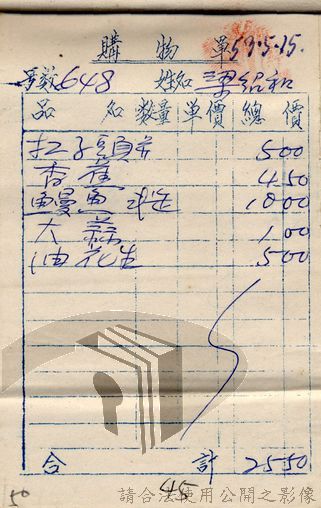 購物單 59.5.15.
號數 648 姓名 梁紹和
品名 數量 單價 總價
扛子頭 5.00
香蕉 4.50
鰻魚 10.00
大蒜 1.00
油花生 5.00
合計 25.50
45
50
請合法使用公開之影像